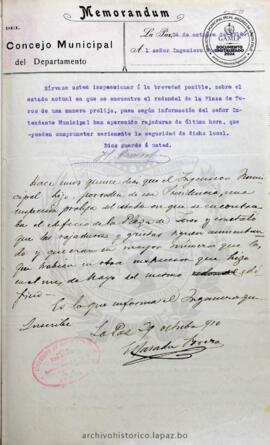 Memorandum
DEL
Concejo Municipal
del Departamento
La Paz, 24 de octubre de 19
Al señor Ingeniero
Sírvase usted inspeccionar á la brevedad posible, sobre el
estado actual en que se encuentre el redondel de la Plaza de To-
ros de una manera prolija, pues según información del señor In-
tendente Municipal han aparecido rajaduras de última hora, que
pueden comprometer seriamente la seguridad de dicho local.
Dios guarde á usted.
Hace unos quince días que el Ingeniero Muni-
cipal hizo por orden de su Presidencia, una
inspección prolija al estado en que se encontra-
ba el edificio de la Plaza de Toros y constató
que las rajaduras y grietas siguen aumentan-
do y que eran en mayor número que las
que habían en otra inspección que hizo
en el mes de Mayo del mismo edi-
ficio.
Es lo que informa el Ingeniero que
suscribe.
La Paz 29 octubre 910
archivohistorico.lapaz.bo